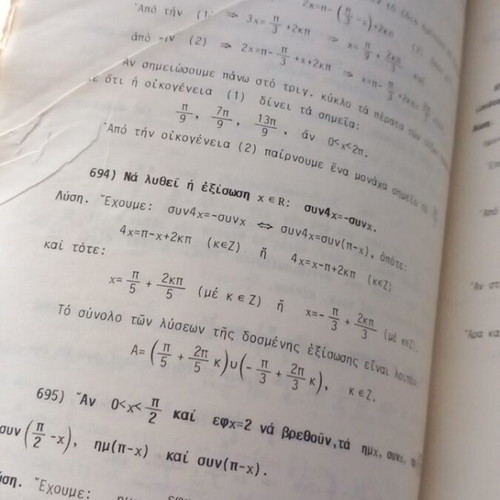 2x=π-(π/3 -x)+2κπ
Ἀπό τήν (1) ⇒ 3x= π/3 +2κπ ⇒ x= π/9 + 2κπ/3
ἀπό (2) ⇒ 2x=π- π/3 +x+2κπ ⇒ x=π- π/3 +2κπ
Ἄν σημειώσουμε πάνω στό τριγ. κύκλο τά πέρατα τῶν
ὅτι ἡ οἰκογένεια (1) δίνει τά σημεῖα:
π/9 , 7π/9 , 13π/9 , ἄν 0<x<2π.
Ἀπό τήν οἰκογένεια (2) παίρνουμε ἕνα μονάχα σημεῖο
694) Νά λυθεῖ ἡ ἐξίσωση x∈R: συν4x=-συνx.
Λύση. Ἔχουμε: συν4x=-συνx ⇔ συν4x=συν(π-x), ὁπότε:
4x=π-x+2κπ (κ∈Z) ἤ 4x=x-π+2κπ (κ∈Z)
καί τότε:
x= π/5 + 2κπ/5 (μέ κ∈Z) ἤ x=- π/3 + 2κπ/3 (μέ κ∈Z).
Τό σύνολο τῶν λύσεων τῆς δοσμένης ἐξίσωσης εἶναι λοιπόν
A=(π/5 + 2π/5 κ)∪(- π/3 + 2π/3 κ), κ∈Z.
695) Ἄν 0<x< π/2 καί εφx=2 νά βρεθοῦν,τά ημx, συνx,
συν(π/2 -x), ημ(π-x) καί συν(π-x).
Ἔχουμε: